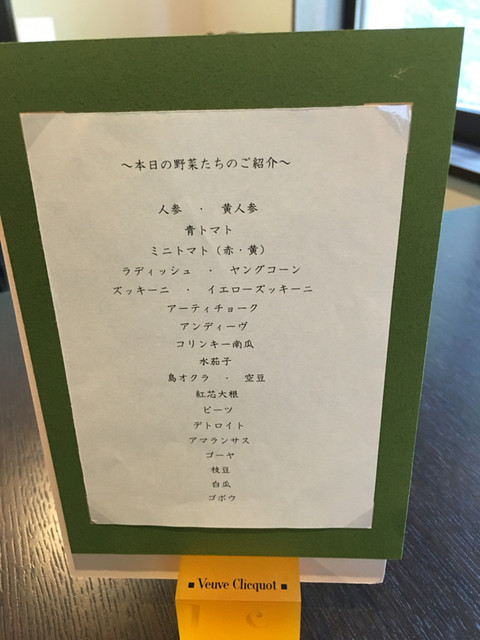 ～本日の野菜たちのご紹介～
人参　・　黄人参
青トマト
ミニトマト（赤・黄）
ラディッシュ　・　ヤングコーン
ズッキーニ　・　イエローズッキーニ
アーティチョーク
アンディーヴ
コリンキー南瓜
水茄子
島オクラ　・　空豆
紅芯大根
ビーツ
デトロイト
アマランサス
ゴーヤ
枝豆
白瓜
ゴボウ
■ Veuve Clicquot ■